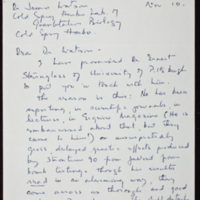 Dr James Watson Nov 10.
Cold Spring Harbor Lab. of
Quantitative Biology
Cold Spring Harbor
Dear Dr Watson -
I have promised Dr Ernest
Sternglass of University of Pittsburgh
to put you in touch with him
The reason is this: He has been
reporting, in scientific journals, in
lectures, in Esquire Magazine (he is
embarrassed about that but they
came to him) on unsuspectedly
gross delayed genetic effects produced
by Strontium 90 from fallout from
bomb testing. Though his results
read in an alarming way, they
come across as thorough and good